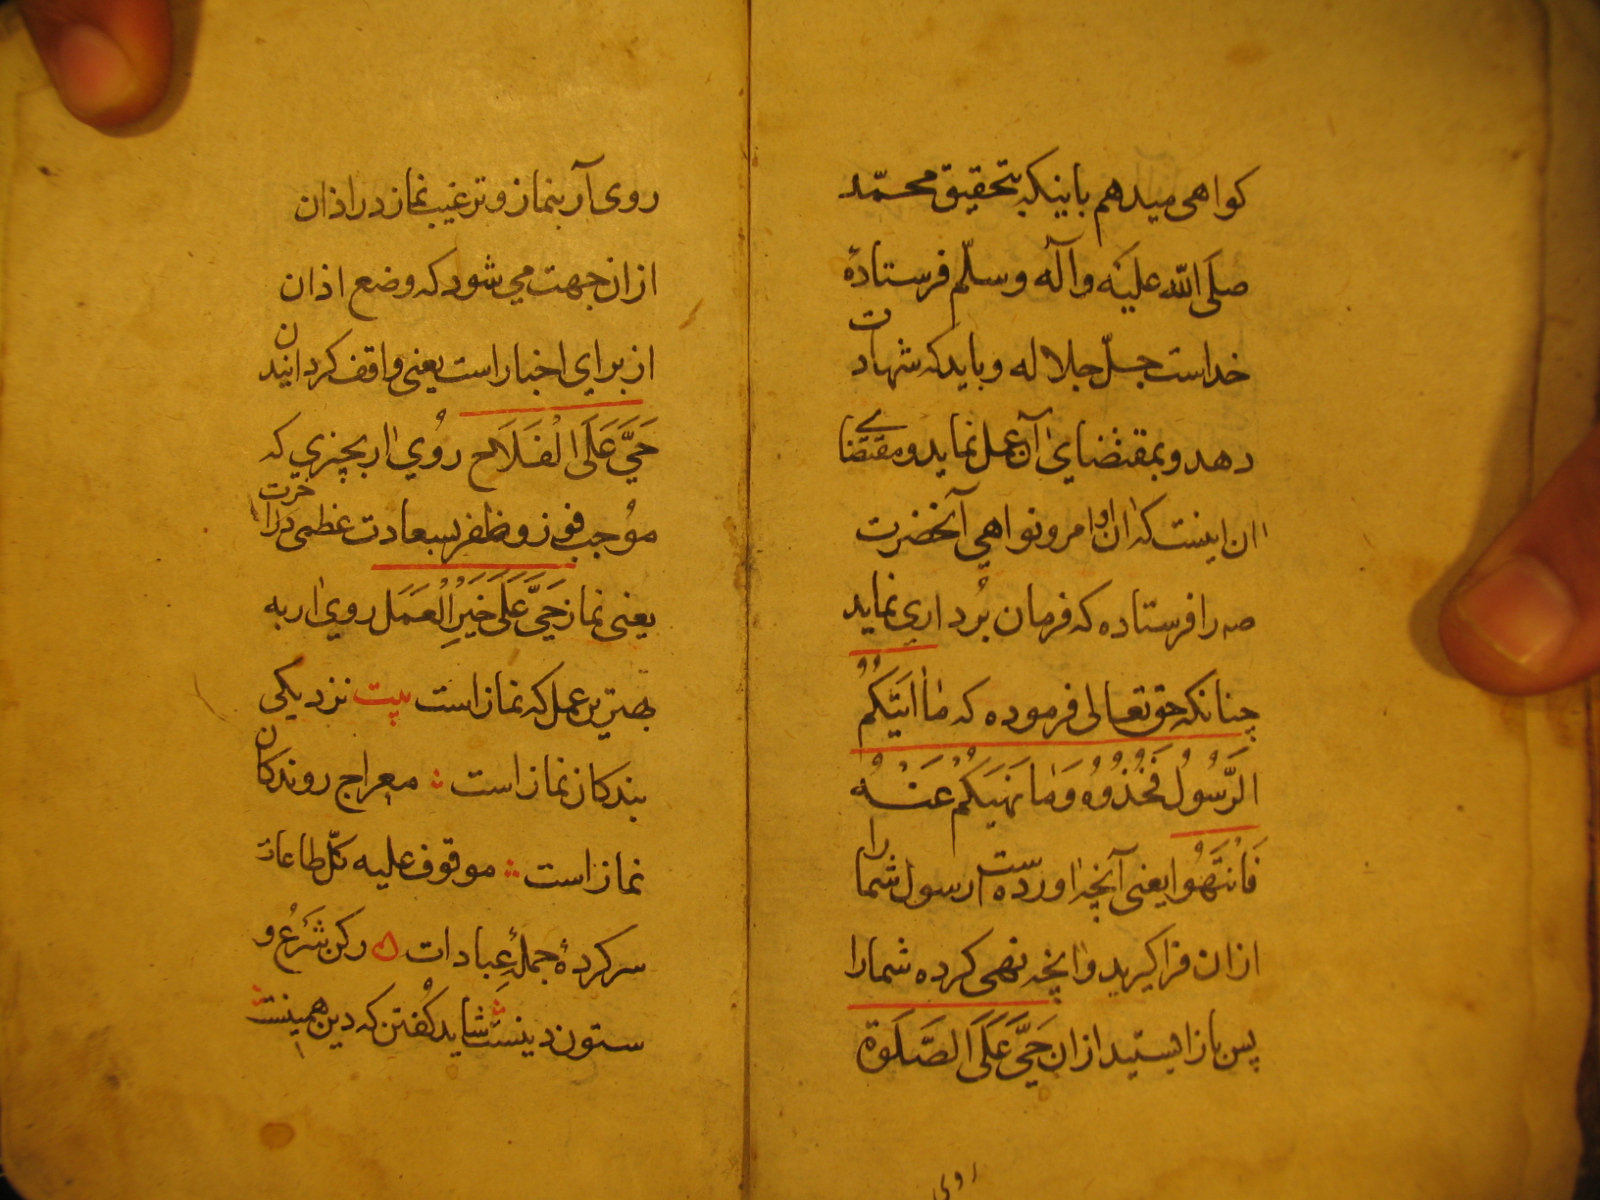 کواهی میدهم باینکه بتحقیق محمّد
صلّی الله علیه وآله وسلّم فرستادهٔ
خداست جلّ جلاله وباید که شهادت
دهد وبمقتضای آن عمل نماید ومقتضای
ان اینست که ان اوامر ونواهی آنحضرت
صه را فرستاده که فرمان برداری نماید
چنانکه حق تعالی فرموده که مٰا اٰتیٰکُمُ
الرَّسُولُ فَخُذُوهُ وَمٰا نَهیٰکُمْ عَنْهُ
فَانْتَهُوا یعنی آنچه اورده است رسول شما را
ازان فراکیرید وانچه نهی کرده شمارا
پس باز ایستید ازان حَیَّ عَلَی الصَّلَوة
روی
روی آر بنماز وترغیب نماز در اذان
ازان جهت می شود که وضع اذان
از برای اخبار است یعنی واقف کردانیدن
حَیَّ عَلَی الْفَلَاح روُی ار بچیزی که
موُجب فوز وظفر بسعادت عظمی در اخرت
یعنی نماز حَیَّ عَلَی خَیرِ الْعَمَل روی ار به
بهترین عمل که نماز است بیت نزدیکی
بندکان نماز است معراج روندکان
نماز است موقوف علیه کلّ طاعات
سرکردهٔ جملهٔ عِبادات رکن شَرْع و
ستون دینست شاید کُفتن که دین همینست